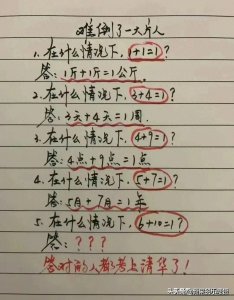 难倒了一大片人
1.在什么情况下,1+1=1?
答:1斤+1斤=1公斤.
2.在什么情况下,3+4=1?
答:3天+4天=1周.
3.在什么情况下,4+9=1?
答:4点+9点=1点
4.在什么情况下,5+7=1?
答:5月+7月=1年
5.在什么情况下,6+10=1?
答:???
答对的人都考上清华了!